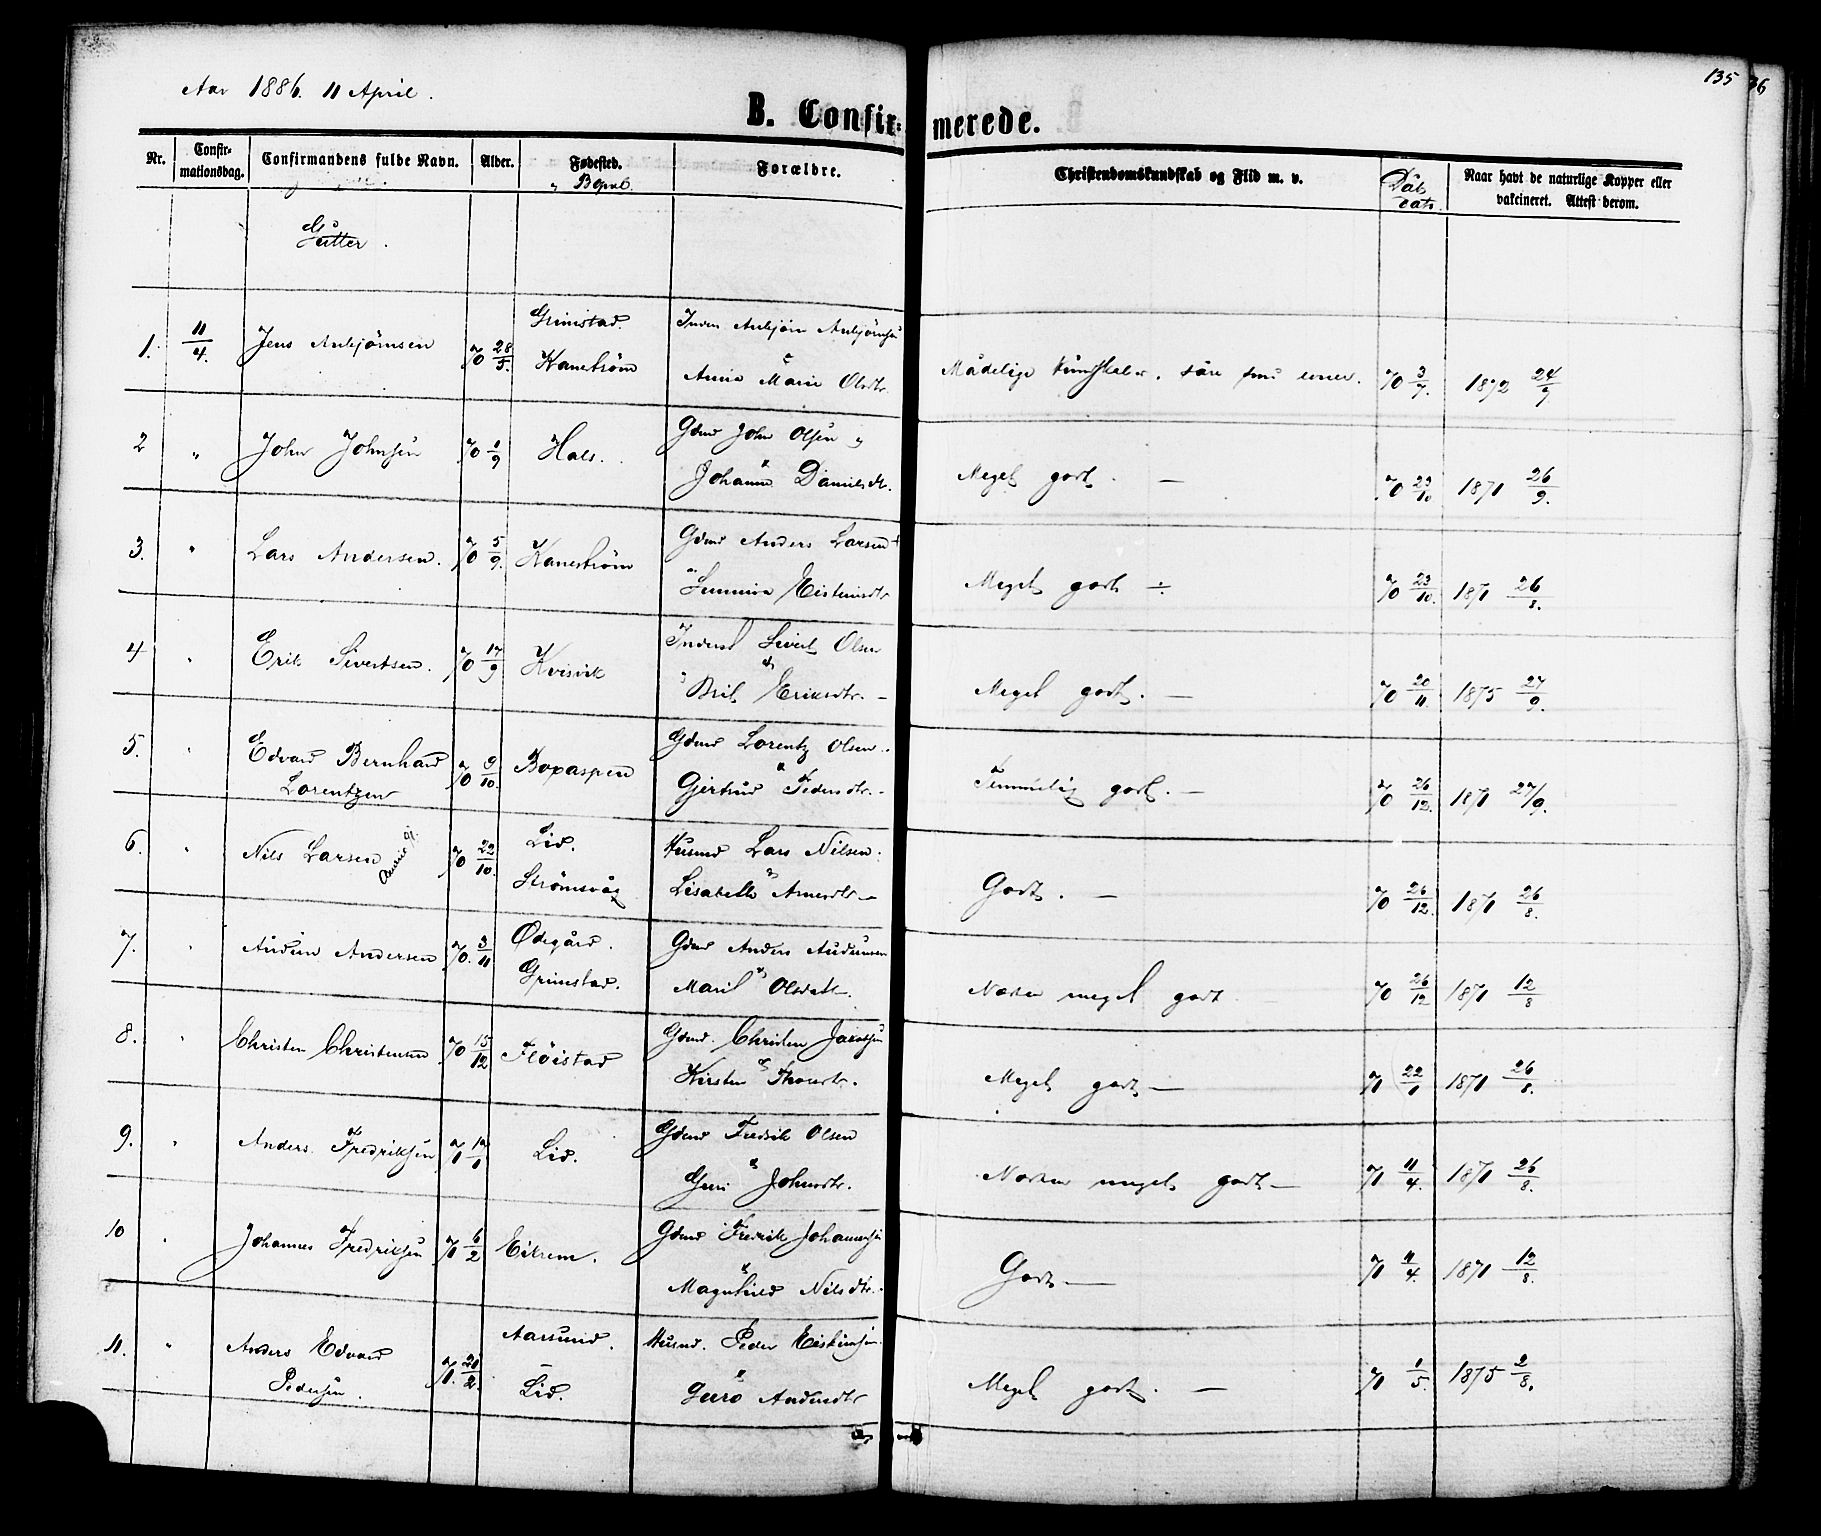 Aar 1886. 11 April.
135
36
B. Confirmerede.
Nr. Confirmationsdag. Confirmandens fulde Navn. Alder. Fødested. „ Bopæl. Forældre. Christendomskundskab og Flid m. v. Dåbsdato. Naar havt de naturlige Kopper eller vakcineret. Attest derom.
Gutter.
1. 11/4. Jens 70 28/5. Grimstad. Kanestrøm Anna Marie Olsdtr. Mådelige 70 3/7. 1872 24/9
2 „ John Johnsen 70 1/9 Hals. Gdmd John Olsen „ Johanna Danielsdtr. Meget godt. — 70 23/10 1871 26/9.
3. „ Lars Andersen. 70 5/9. Kanestrøm Gdmd Anders Larsen Meget godt ÷ 70 23/10. 1871 26/8.
4 „ Erik Sivertsen. 70 17/9 Kvisvik Inderst Sivert Olsen Brit Eriksdtr. — Meget godt. — 70 20/11. 1875 27/9.
5. „ Edvard Bernhard Lorentzen 70 9/10. Boxaspen Gdmd Lorentz Olsen. „ Gjertrud Pedersdtr. — Temmelig godt. — 70 26/12. 1871 27/9.
6. „ Nils Larsen 70 22/10. Lid. Strømsvåg Husmd Lars Nilsen. „ Lisabeth Arnesdtr — Godt. — 70 26/12. 1871 26/8.
7. „ Audun Andersen 70. 3/11 Ødegård. Grimstad. Gdmd Anders Audunsen „ Marit Olsdatr. Næsten meget godt 70 26/12 1871 12/8
8. „ Christen Christensen 70 15/12 Fløistad Gdmd. Christen Jakobsen Kirsten Meget godt — 71 22/1 1871 26/8.
9. „ Anders Fredriksen 71 19/1 Lid. Gdmd Fredrik Olsen „ Guri Johnsdtr. Næsten meget godt — 71 11/4. 1871 26/8.
10 „ Johannes Fredriksen 71 6/2 Eikrem. Gdmd Fredrik Johannesen „ Magnhild Nilsdtr. Godt — 71 11/4. 1871 12/8.
11. „ Anders Edvard Pedersen. 71. 20/2. Aarsund. Lid. Husmd. Peder „ Guro Meget godt. — 71 1/5. 1875 2/8.